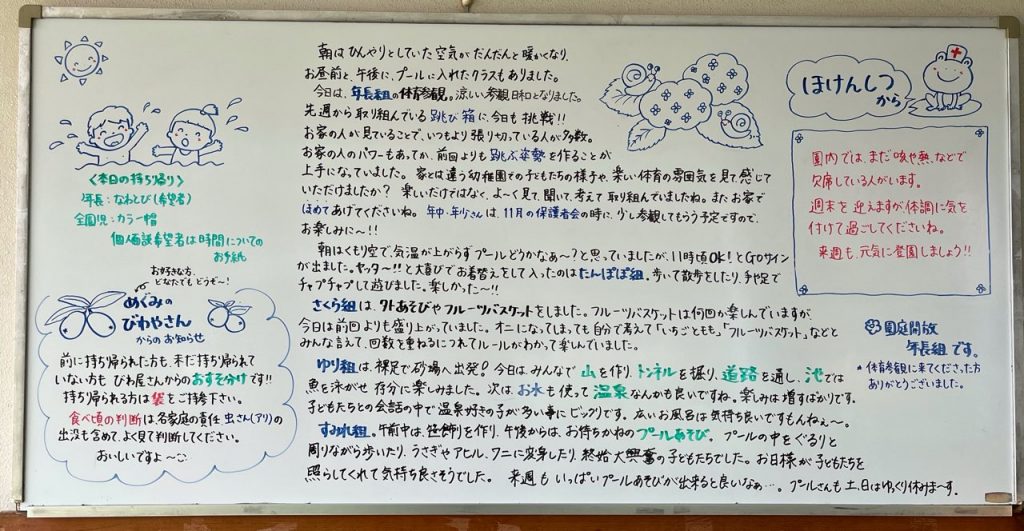 朝はひんやりとしていた空気がだんだんと暖かくなり、
お昼前と、午後に、プールに入れたクラスもありました。
今日は、年長組の体育参観。涼しい参観日和となりました。
先週から取り組んでいる跳び箱に、今日も挑戦!!
お家の人が見ていることで、いつもより張り切っている人が多数。
お家の人のパワーもあってか、前回よりも跳ぶ姿勢を作ることが
上手になっていました。家とは違う幼稚園での子どもたちの様子や、楽しい体育の雰囲気を見て感じて
いただけましたか? 楽しいだけではなく、よーく見て、聞いて、考えて取り組んでいましたね。またお家で
ほめてあげてくださいね。年中・年少さんは、11月の保護者会の時に、少し参観してもらう予定ですので、
お楽しみに〜!!
朝はくもり空で、気温が上がらずプールどうかなぁ〜?と思っていましたが、11時頃OK!とGoサイン
が出ました。ヤッター〜!!と大喜びでお着替えをして入ったのはたんぽぽ組。歩いて散歩をしたり、手や足で
チャプチャプして遊びました。楽しかった〜!!
さくら組は、外あそびやフルーツバスケットをしました。フルーツバスケットは何回か楽しんでいますが、
今日は前回よりも盛り上がっていました。オニになってしまっても自分で考えて「いちごともも」「フルーツバスケット」などと
みんな言えて、回数を重ねるにつれてルールがわかって楽しんでいました。
ゆり組は、裸足で砂場へ出発?今日は、みんなで山を作り、トンネルを掘り、道路を通し、池では
魚を泳がせ存分に楽しみました。次は、お水も使って温泉なんかも良いですね。楽しみは増すばかりです。
子どもたちとの会話の中で温泉好きの子が多い事にビックリです。広いお風呂は気持ち良いですもんねぇ〜。
すみれ組。午前中は、笹飾りを作り、午後からは、お待ちかねのプールあそび。プールの中をぐるりと
周りながら歩いたり、うさぎやアヒル、ワニに変身したり、終始大興奮の子どもたちでした。お日様が子どもたちを
照らしてくれて気持ち良さそうでした。 来週もいっぱいプールあそびが出来ると良いなぁ…。プールさんも土、日はゆっくり休みま〜す。
<本日の持ち帰り>
年長:なわとび(希望者)
全園児:カラー帽
個人面談希望者は時間についての
お手紙
お好きな方、
どなたでもどうぞ〜!
めぐみの
びわやさん
からのお知らせ
前に持ち帰られた方も、未だ持ち帰られて
いない方も びわ屋さんからのおすそ分けです!!
持ち帰られる方は袋をご持参下さい。
食べ頃の判断は、各家庭の責任 虫さん(アリ)の
出没も含めて、よく見て判断してください。
おいしいですよ〜
ほけんしつ
から
園内では、まだ咳や熱、などで
欠席している人がいます。
週末を迎えますが、体調に気を
付けて過ごしてくださいね。
来週も、元気に登園しましょう!!
園庭開放
年長組です。
* 体育参観に来てくださった方
ありがとうございました。